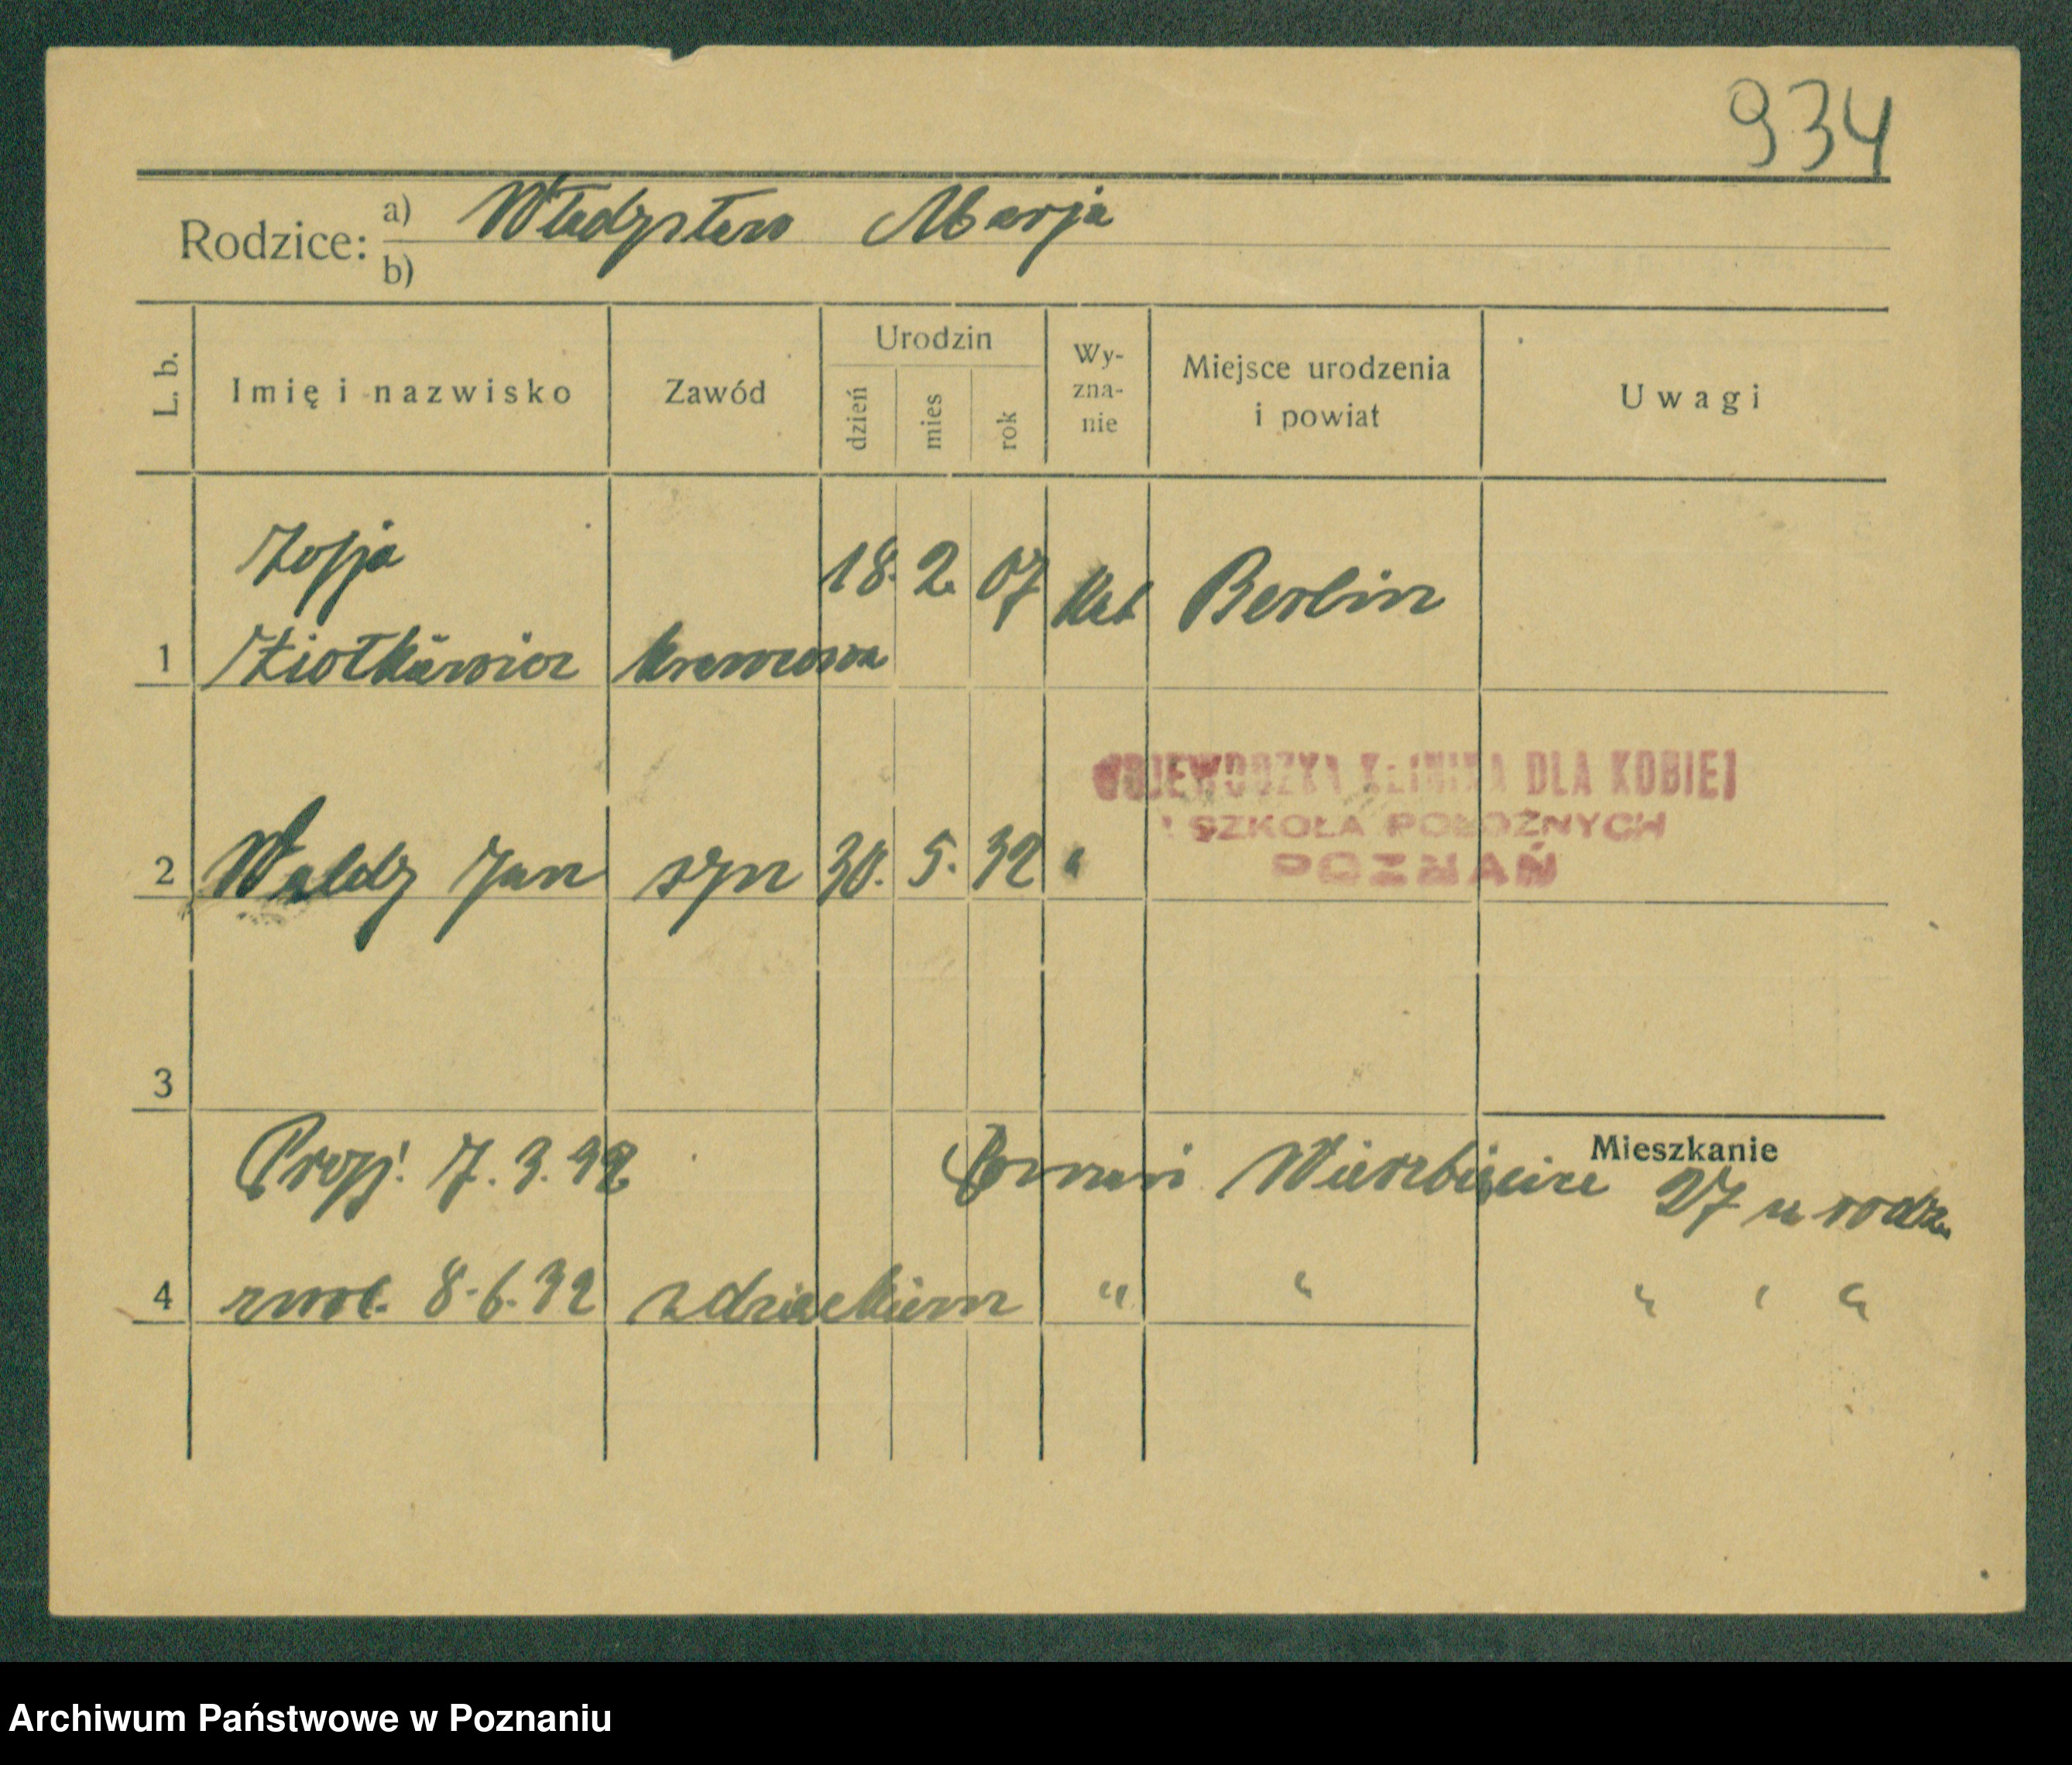 934
Rodzice: a) Władysław Marja
b)
L. b. Imię i nazwisko Zawód Urodzin dzień mies rok Wy-zna-nie Miejsce urodzenia i powiat Uwagi
Zofja 18. 2. 07 kat Berlin
1 Ziółkiewicz krawcowa
WOJEWÓDZKA KLINIKA DLA KOBIET
I SZKOŁA POŁOŻNYCH
POZNAŃ
2 Waldy Jan syn 30. 5. 32 "
3
Mieszkanie
Przyj. 7. 3. 32 Poznań Wierzbięcice 27 u rodz.
4 zwol. 8. 6. 32 z dzieckiem " " " " "
Archiwum Państwowe w Poznaniu